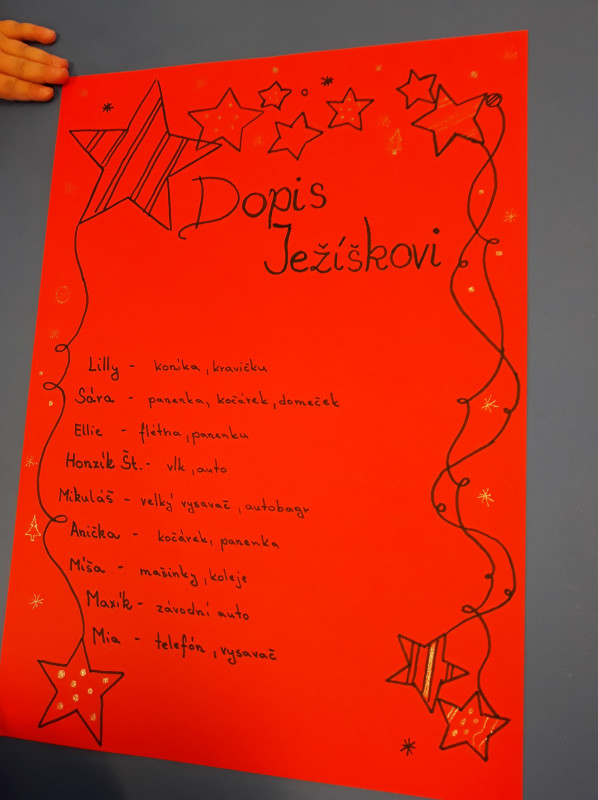 Dopis
Ježíškovi
Lilly - koníka, kravičku
Sára - panenka, kočárek, domeček
Ellie - flétna, panenku
Honzík Št. - vlk, auto
Mikuláš - velký vysavač, autobagr
Anička - kočárek, panenka
Míša - mašinky, koleje
Maxík - závodní auto
Mia - telefón, vysavač